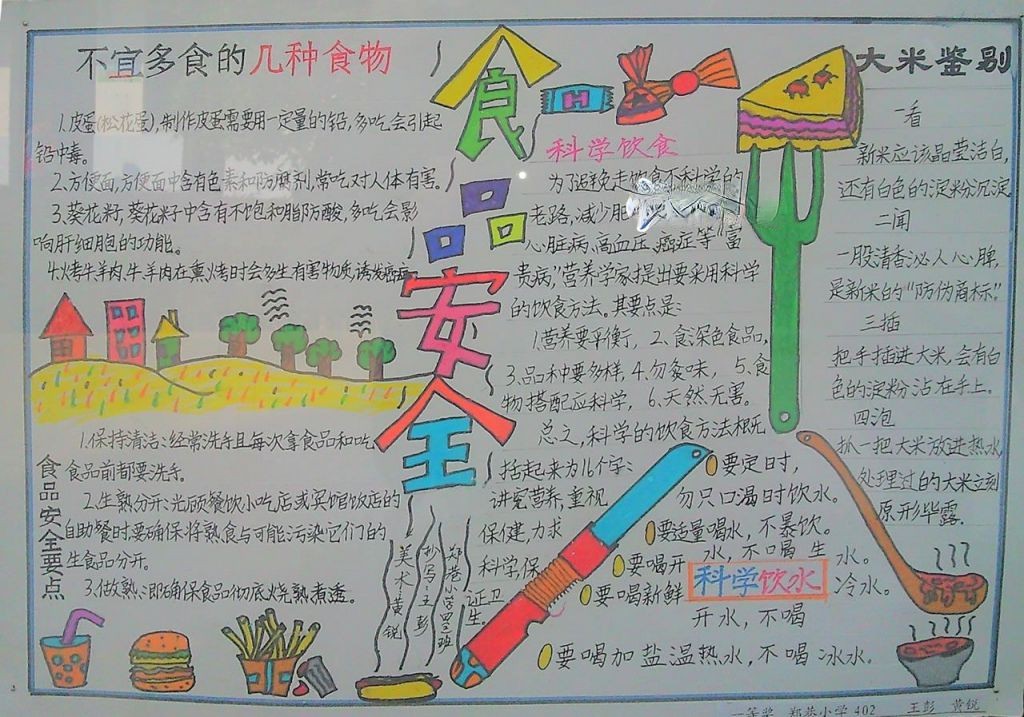 不宜多食的几种食物
1.皮蛋(松花蛋),制作皮蛋需要用一定量的铅,多吃会引起
铅中毒。
2.方便面,方便面中含有色素和防腐剂,常吃对人体有害。
3.葵花籽,葵花籽中含有不饱和脂防酸,多吃会影
响肝细胞的功能。
4.烤牛羊肉,牛羊肉在熏烤时会多生有害物质,诱发癌症
食品安全
食品安全要点
1.保持清洁:经常洗手且每次拿食品和吃
食品前都要洗手。
2.生熟分开:光顾餐饮小吃店或宾馆饭店的
自助餐时要确保将熟食与可能污染它们的
生食品分开。
3.做熟:即确保食品彻底烧熟煮透。
科学饮食
为了避免走饮食不科学的
老路,减少肥
心脏病,高血压,癌症等“富
贵病”营养学家提出要采用科学
的饮食方法。其要点是:
1.营养要平衡, 2.食深色食品,
3.品种要多样, 4.勿贪味, 5.食
物搭配应科学, 6.天然无害。
总之,科学的饮食方法概无
括起来为八个字:
讲究营养,重视
保健,力求
科学,保
证卫
生。
美术:黄锐
抄写:王彭
郑巷小学四2班
科学饮水
要定时,
勿只口渴时饮水。
要适量喝水,不暴饮。
要喝开水,不喝生水。
要喝新鲜开水,不喝冷水。
要喝加盐温热水,不喝冰水。
大米鉴别
一看
新米应该晶莹洁白,
还有白色的淀粉沉淀
二闻
一股清香沁人心脾,
是新米的“防伪商标”。
三插
把手插进大米,会有白
色的淀粉沾在手上。
四泡
抓一把大米放进热水
处理过的大米立刻
原形毕露.
一等奖 郑巷小学402 王彭 黄锐